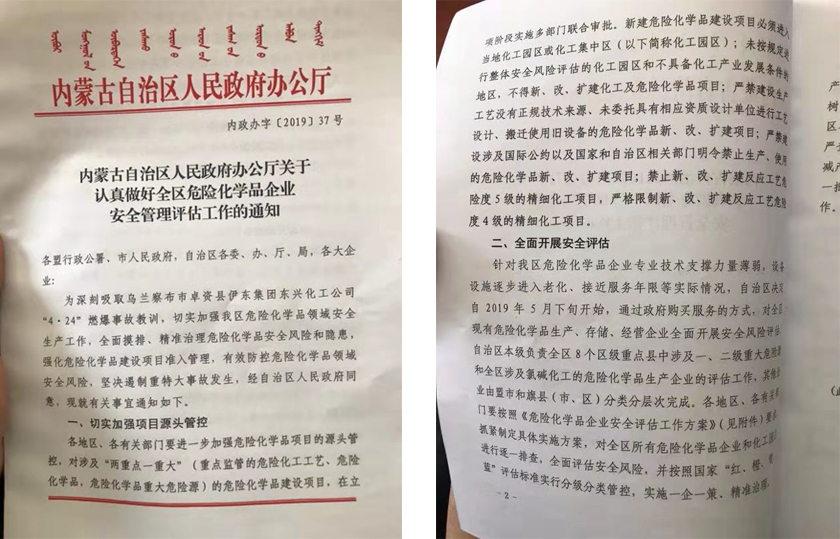 内蒙古自治区人民政府办公厅
内政办字〔2019〕37号
内蒙古自治区人民政府办公厅关于
认真做好全区危险化学品企业
安全管理评估工作的通知
各盟行政公署、市人民政府，自治区各委、办、厅、局，各大企
业：
为深刻吸取乌兰察布市卓资县伊东集团东兴化工公司
“4·24”燃爆事故教训，切实加强我区危险化学品领域安全
生产工作，全面摸排、精准治理危险化学品安全风险和隐患，
强化危险化学品建设项目准入管理，有效防控危险化学品领域
安全风险，坚决遏制重特大事故发生，经自治区人民政府同
意，现就有关事宜通知如下。
一、切实加强项目源头管控
各地区、各有关部门要进一步加强危险化学品项目的源头管
控，对涉及“两重点一重大”（重点监管的危险化工工艺、危险
化学品，危险化学品重大危险源）的危险化学品建设项目，在立
项阶段实施多部门联合审批。新建危险化学品建设项目必须进入
当地化工园区或化工集中区（以下简称化工园区）；未按规定进
行整体安全风险评估的化工园区和不具备化工产业发展条件的
地区，不得新、改、扩建化工及危险化学品项目；严禁建设生产
工艺没有正规技术来源、未委托具有相应资质设计单位进行工艺
设计、搬迁使用旧设备的危险化学品新、改、扩建项目；严禁
设涉及国际公约以及国家和自治区相关部门明令禁止生产、使用
的危险化学品新、改、扩建项目；禁止新、改、扩建反应工艺危
险度5级的精细化工项目，严格限制新、改、扩建反应工艺危险
度4级的精细化工项目。
二、全面开展安全评估
针对我区危险化学品企业专业技术支撑力量薄弱，设备
设施逐步进入老化、接近服务年限等实际情况，自治区决
自2019年5月下旬开始，通过政府购买服务的方式，对全区
现有危险化学品生产、存储、经营企业全面开展安全风险评估
自治区本级负责全区8个区级重点县中涉及一、二级重大危险
和全区涉及氯碱化工的危险化学品生产企业的评估工作，其他
业由盟市和旗县（市、区）分类分层次完成。各地区、各有关
门要按照《危险化学品企业安全评估工作方案》（见附件）要
抓紧制定具体实施方案，对全区所有危险化学品企业和化工园
进行逐一排查，全面评估安全风险，并按照国家“红、橙、
蓝”评估标准实行分级分类管控，实施一企一策、精准治理，
- 2 -